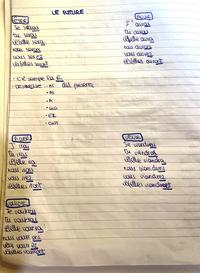 LE FUTURE
ÊTRE
Je serai
tu seras
il/elle sera
nous serons
vous serez
ils/elles seront
AVOIR
J' aurai
tu auras
il/elle aura
nous aurons
vous aurez
ils/elles auront
- ai
- as
- A
- ons
- EZ
- ont
ALLER
J' irai
tu iras
il/elle ira
nous irons
vous irez
ils/elles iront
VENIR
Je viendrai
tu viendras
il/elle viendra
nous viendrons
vous viendrez
ils/elles viendront
Je voudrai
tu voudras
il/elle voudra